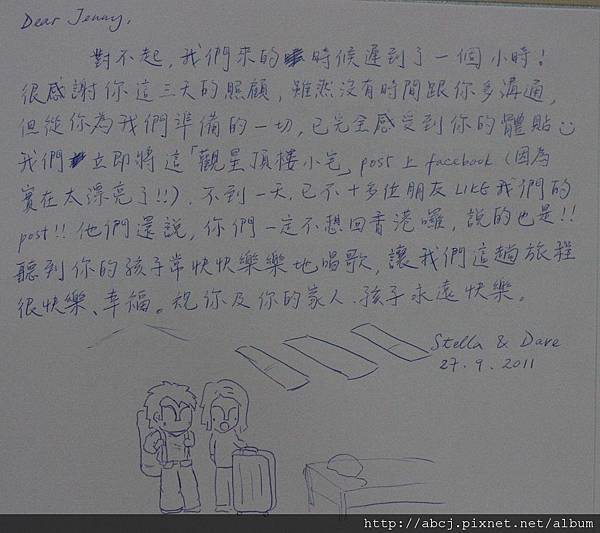 Dear Jenny,
對不起,我們來的時候遲到了一個小時!
很感謝你這三天的照顧,雖然沒有時間跟你多溝通,
但從你為我們準備的一切,已完全感受到你的體貼
我們立即將這「觀星頂樓小宅」post上facebook(因為
實在太漂亮了!!),不到一天,已不十多位朋友LIKE我們的
post!!他們還說,你們一定不想回香港囉,說的也是!!
聽到你的孩子常快快樂樂地唱歌,讓我們這趟旅程
很快樂、幸福。祝你及你的家人、孩子永遠快樂。
Stella & Dave
27.9.2011
http://abcj.pixnet.net/album